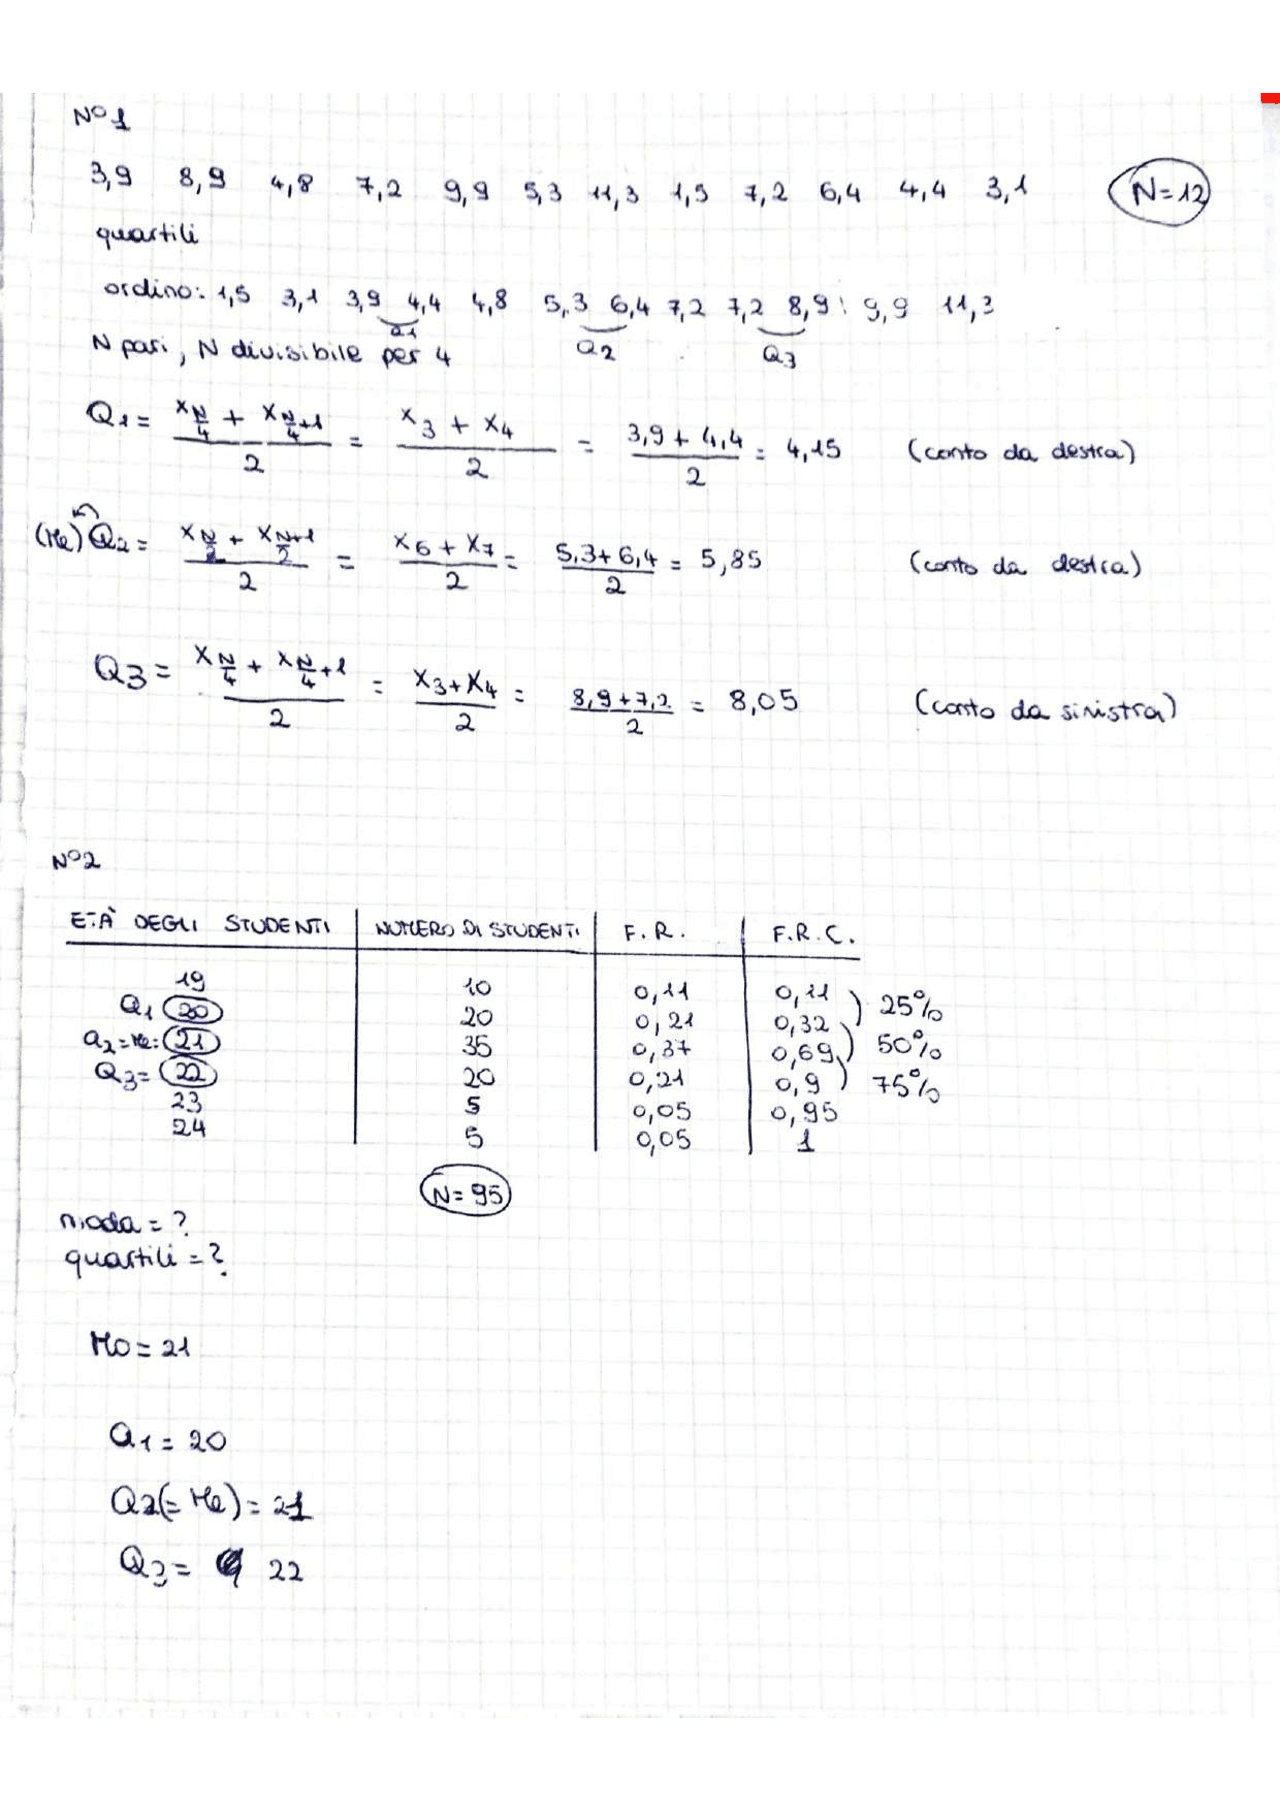 N°1
3,9 8,9 4,8 7,2 9,9 5,3 11,3 1,5 7,2 6,4 4,4 3,1 N=12
quartili
ordino: 1,5 3,1 3,9 4,4 4,8 5,3 6,4 7,2 7,2 8,9 9,9 11,3
Q1 Q2 Q3
N pari, N divisibile per 4
Q1 = (x_{N/4} + x_{N/4+1})/2 = (x3 + x4)/2 = (3,9 + 4,4)/2 = 4,15 (conto da destra)
(Me) Q2 = (x_{N/2} + x_{N+1/2})/2 = (x6 + x7)/2 = (5,3+6,4)/2 = 5,85 (conto da destra)
Q3 = (x_{N/4} + x_{N/4+1})/2 = (x3+x4)/2 = (8,9+7,2)/2 = 8,05 (conto da sinistra)
N°2
ETÀ DEGLI STUDENTI NUMERO DI STUDENTI F.R. F.R.C.
19 10 0,11 0,11
Q1 20 20 0,21 0,32 25%
Q2=Me= 21 35 0,37 0,69 50%
Q3= 22 20 0,21 0,9 75%
23 5 0,05 0,95
24 5 0,05 1
N=95
moda = ?
quartili = ?
Mo = 21
Q1 = 20
Q2(= Me) = 21
Q3 = 22